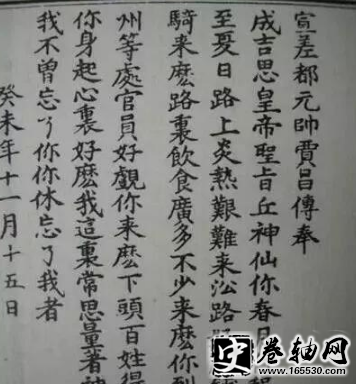 宣差都元帥賈昌傳奉
成吉思皇帝聖旨丘神仙你春月
至夏日路上炎熱艱難来㳂路
騎来麽路裏飲食廣多不少来麽你到
州等處官員好覷你来麽下頭百姓得
你身起心裏好麽我這裏常思量著神
我不曾忘了你你休忘了我者
癸未年十一月十五日
史
卷轴网
www.165530.com